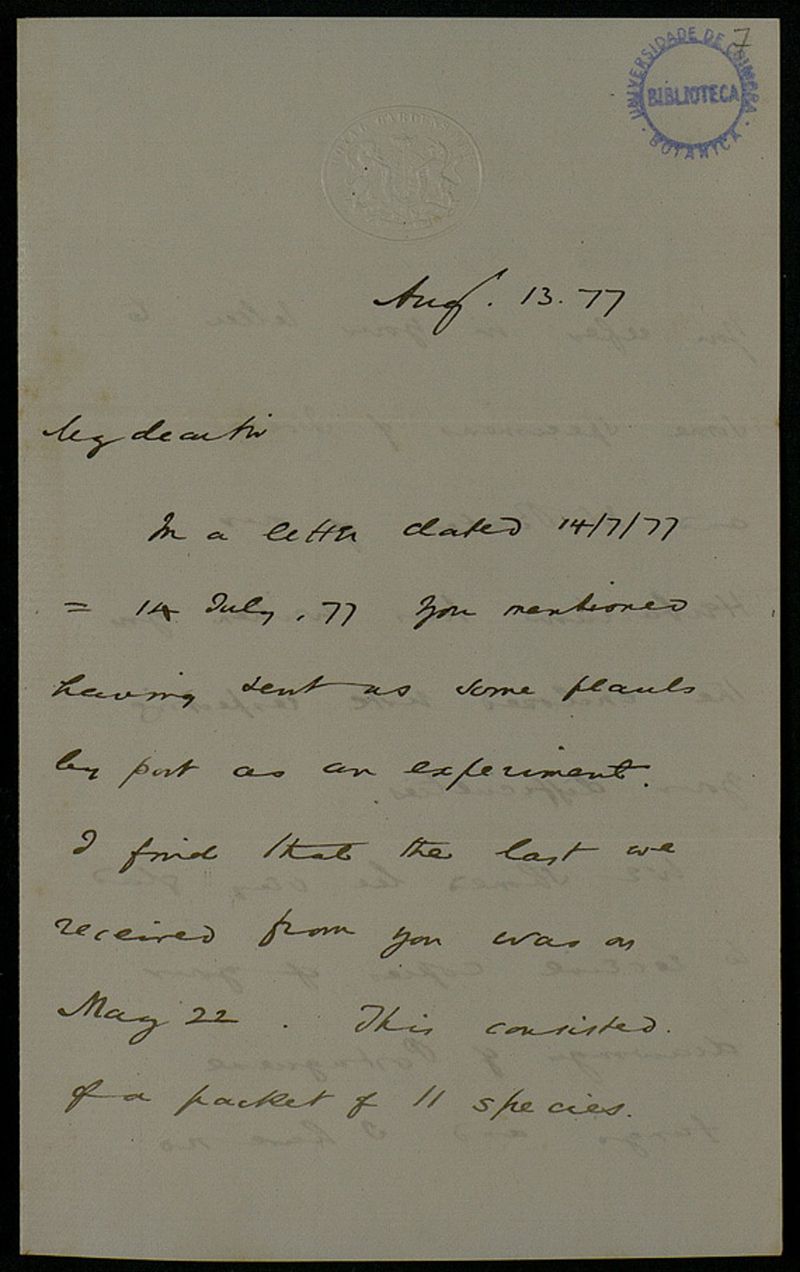 7
UNIVERSIDADE DE COIMBRA
BIBLIOTECA
BOTANICA
ROYAL GARDENS
Aug. 13. 77
My dear Sir
In a letter dated 14/7/77
= 14 July, 77 you mentioned
having sent us some plants
by post as an experiment.
I find that the last we
received from you was on
May 22. This consisted
of a packet of 11 species.